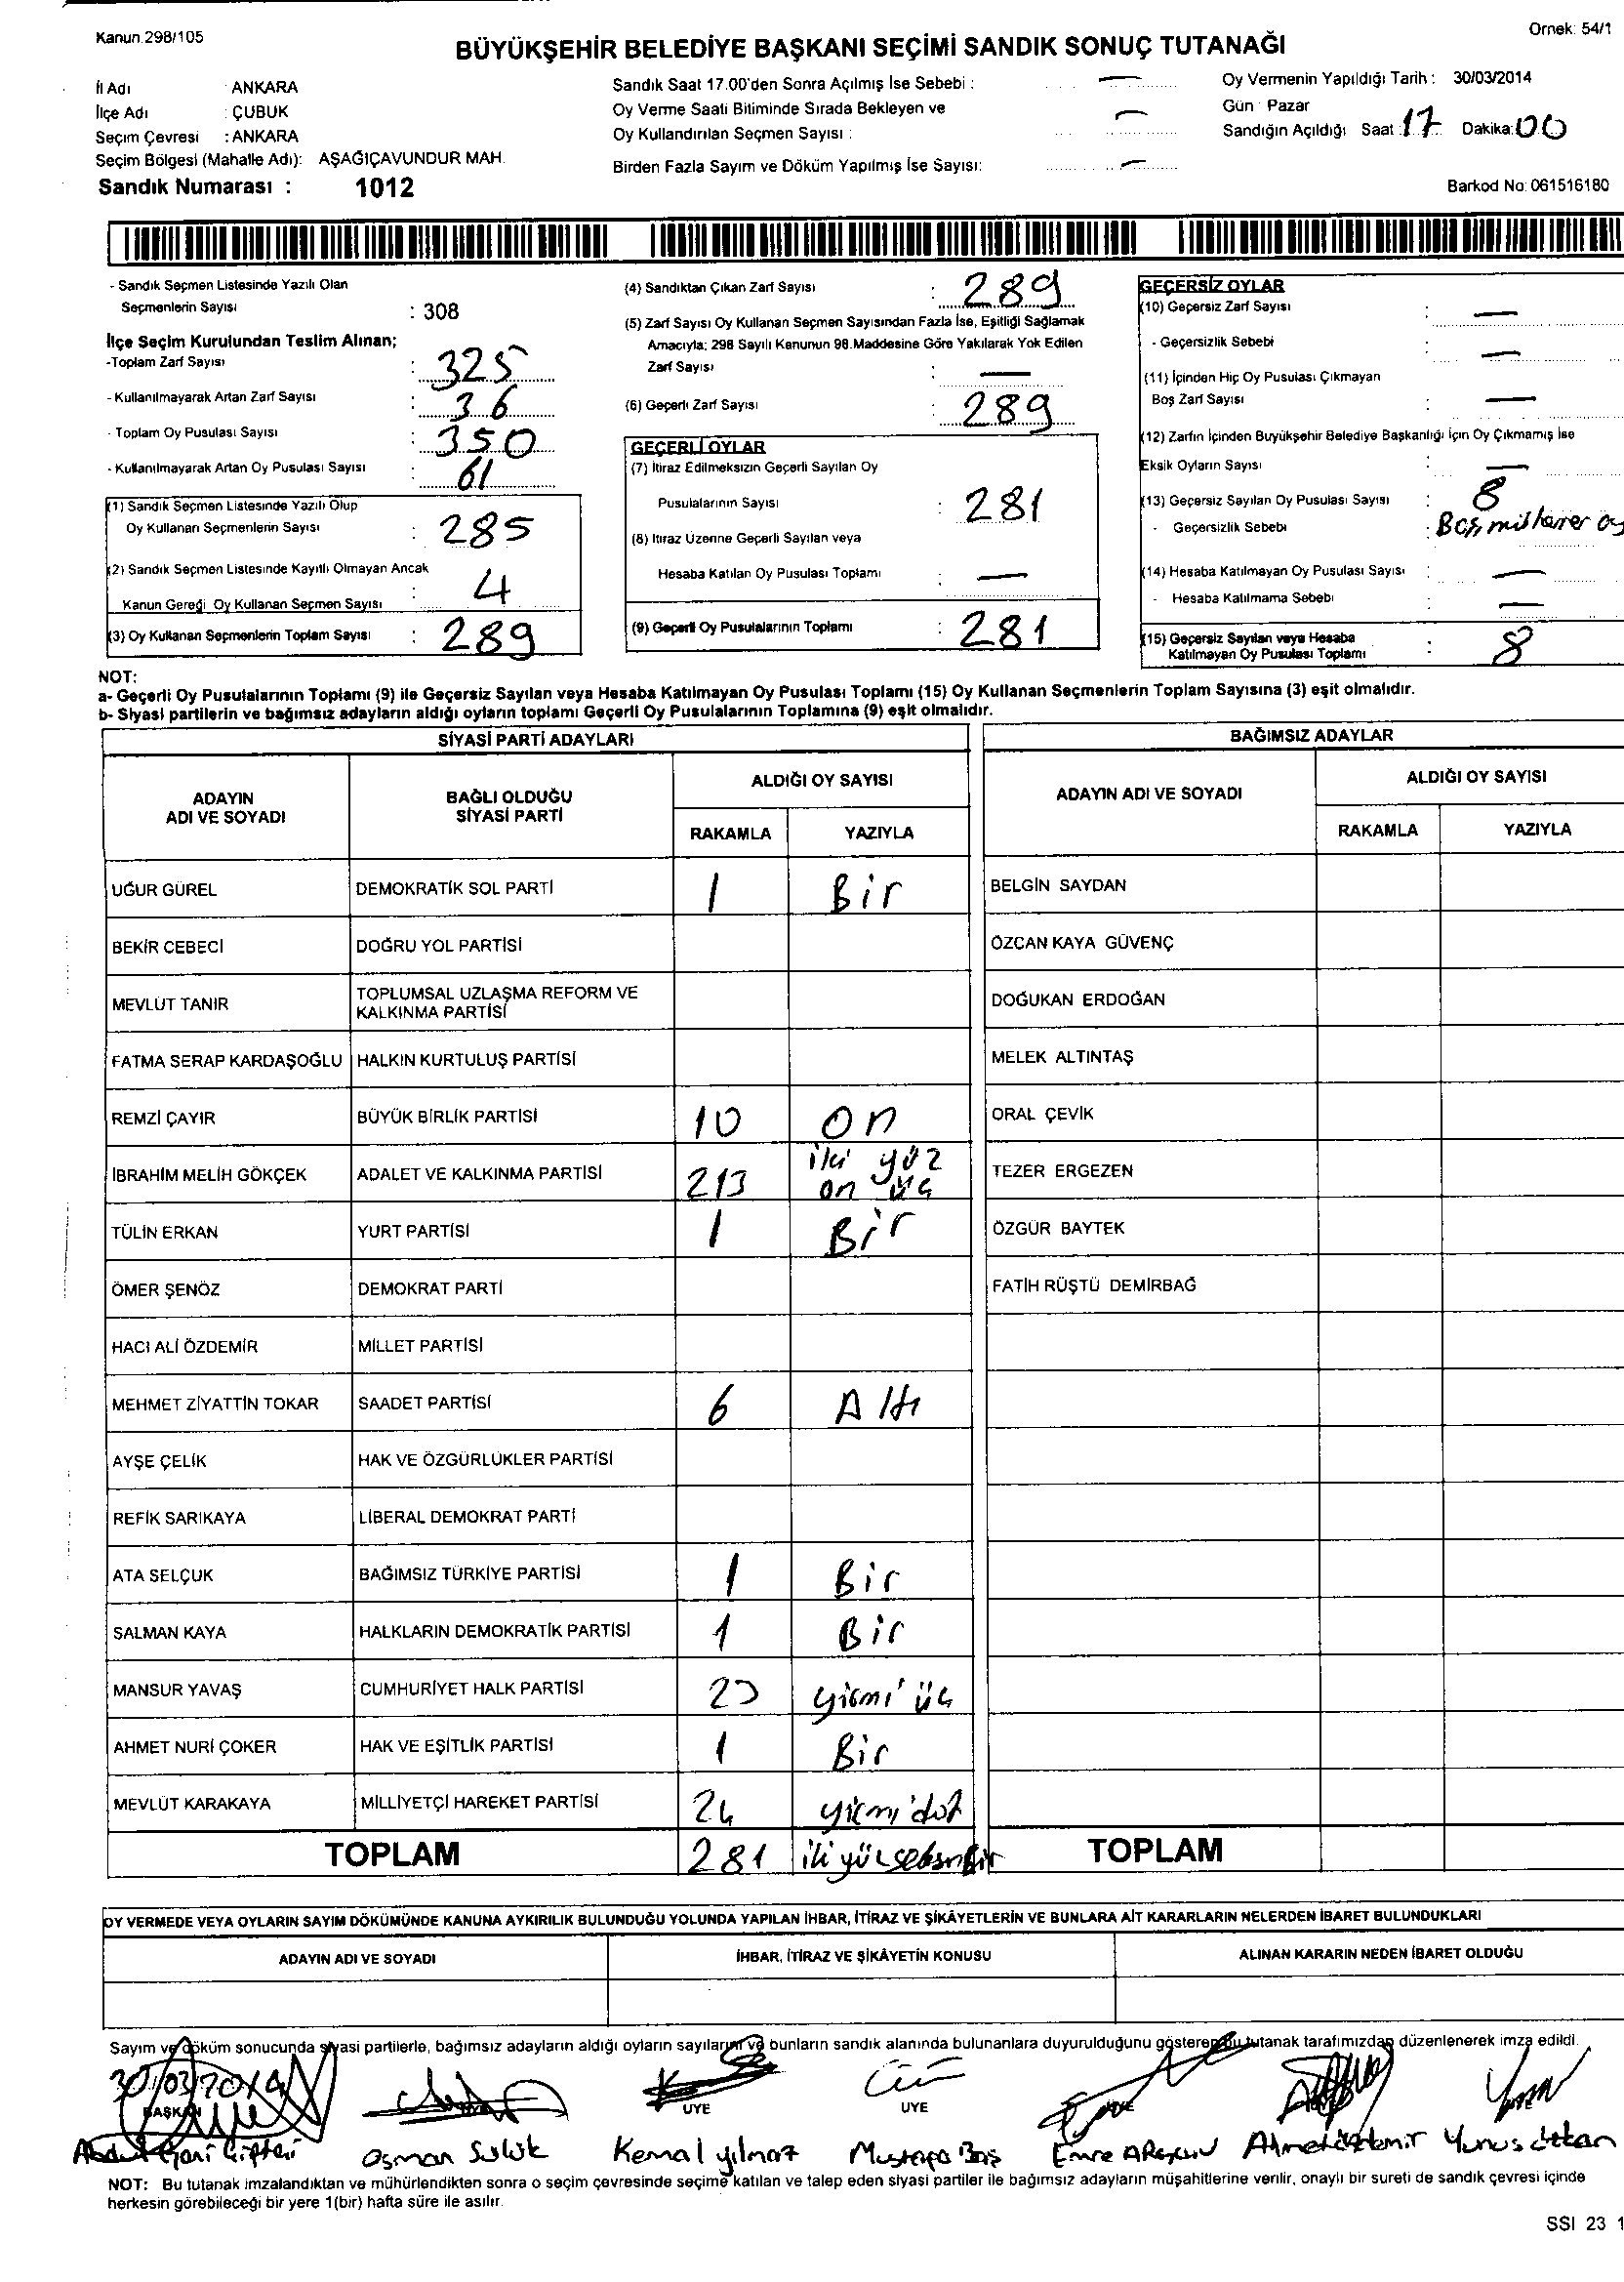 Kanun 298/105
Örnek: 54/1
BÜYÜKŞEHİR BELEDİYE BAŞKANI SEÇİMİ SANDIK SONUÇ TUTANAĞI
İl Adı : ANKARA
İlçe Adı : ÇUBUK
Seçim Çevresi : ANKARA
Seçim Bölgesi (Mahalle Adı): AŞAĞIÇAVUNDUR MAH.
Sandık Numarası : 1012
Sandık Saat 17.00'den Sonra Açılmış İse Sebebi : —
Oy Verme Saati Bitiminde Sırada Bekleyen ve
Oy Kullandırılan Seçmen Sayısı : —
Birden Fazla Sayım ve Döküm Yapılmış İse Sayısı: —
Oy Vermenin Yapıldığı Tarih : 30/03/2014
Gün : Pazar
Sandığın Açıldığı Saat : 17 Dakika: 00
Barkod No: 061516180
- Sandık Seçmen Listesinde Yazılı Olan
Seçmenlerin Sayısı : 308
İlçe Seçim Kurulundan Teslim Alınan;
-Toplam Zarf Sayısı : 325
- Kullanılmayarak Artan Zarf Sayısı : 36
- Toplam Oy Pusulası Sayısı : 350
- Kullanılmayarak Artan Oy Pusulası Sayısı : 61
(1) Sandık Seçmen Listesinde Yazılı Olup
Oy Kullanan Seçmenlerin Sayısı : 285
(2) Sandık Seçmen Listesinde Kayıtlı Olmayan Ancak
Kanun Gereği Oy Kullanan Seçmen Sayısı : 4
(3) Oy Kullanan Seçmenlerin Toplam Sayısı : 289
(4) Sandıktan Çıkan Zarf Sayısı : 289
(5) Zarf Sayısı Oy Kullanan Seçmen Sayısından Fazla İse, Eşitliği Sağlamak
Amacıyla; 298 Sayılı Kanunun 98.Maddesine Göre Yakılarak Yok Edilen
Zarf Sayısı : —
(6) Geçerli Zarf Sayısı : 289
GEÇERLİ OYLAR
(7) İtiraz Edilmeksizin Geçerli Sayılan Oy
Pusulalarının Sayısı : 281
(8) İtiraz Üzerine Geçerli Sayılan veya
Hesaba Katılan Oy Pusulası Toplamı : —
(9) Geçerli Oy Pusulalarının Toplamı : 281
GEÇERSİZ OYLAR
(10) Geçersiz Zarf Sayısı : —
- Geçersizlik Sebebi : —
(11) İçinden Hiç Oy Pusulası Çıkmayan
Boş Zarf Sayısı : —
(12) Zarfın İçinden Büyükşehir Belediye Başkanlığı İçin Oy Çıkmamış İse
Eksik Oyların Sayısı : —
(13) Geçersiz Sayılan Oy Pusulası Sayısı : 8
- Geçersizlik Sebebi : Boş,
(14) Hesaba Katılmayan Oy Pusulası Sayısı : —
- Hesaba Katılmama Sebebi : —
(15) Geçersiz Sayılan veya Hesaba
Katılmayan Oy Pusulası Toplamı : 8
NOT:
a- Geçerli Oy Pusulalarının Toplamı (9) ile Geçersiz Sayılan veya Hesaba Katılmayan Oy Pusulası Toplamı (15) Oy Kullanan Seçmenlerin Toplam Sayısına (3) eşit olmalıdır.
b- Siyasi partilerin ve bağımsız adayların aldığı oyların toplamı Geçerli Oy Pusulalarının Toplamına (9) eşit olmalıdır.
SİYASİ PARTİ ADAYLARI
BAĞIMSIZ ADAYLAR
ADAYIN ADI VE SOYADI
BAĞLI OLDUĞU SİYASİ PARTİ
ALDIĞI OY SAYISI
RAKAMLA YAZIYLA
ADAYIN ADI VE SOYADI
ALDIĞI OY SAYISI
RAKAMLA YAZIYLA
UĞUR GÜREL DEMOKRATİK SOL PARTİ 1 Bir BELGİN SAYDAN
BEKİR CEBECİ DOĞRU YOL PARTİSİ ÖZCAN KAYA GÜVENÇ
MEVLÜT TANIR TOPLUMSAL UZLAŞMA REFORM VE KALKINMA PARTİSİ DOĞUKAN ERDOĞAN
FATMA SERAP KARDAŞOĞLU HALKIN KURTULUŞ PARTİSİ MELEK ALTINTAŞ
REMZİ ÇAYIR BÜYÜK BİRLİK PARTİSİ 10 On ORAL ÇEVİK
İBRAHİM MELİH GÖKÇEK ADALET VE KALKINMA PARTİSİ 213 iki yüz on üç TEZER ERGEZEN
TÜLİN ERKAN YURT PARTİSİ 1 Bir ÖZGÜR BAYTEK
ÖMER ŞENÖZ DEMOKRAT PARTİ FATİH RÜŞTÜ DEMİRBAĞ
HACI ALİ ÖZDEMİR MİLLET PARTİSİ
MEHMET ZİYATTİN TOKAR SAADET PARTİSİ 6 Altı
AYŞE ÇELİK HAK VE ÖZGÜRLÜKLER PARTİSİ
REFİK SARIKAYA LİBERAL DEMOKRAT PARTİ
ATA SELÇUK BAĞIMSIZ TÜRKİYE PARTİSİ 1 Bir
SALMAN KAYA HALKLARIN DEMOKRATİK PARTİSİ 1 Bir
MANSUR YAVAŞ CUMHURİYET HALK PARTİSİ 23 yirmi üç
AHMET NURİ ÇOKER HAK VE EŞİTLİK PARTİSİ 1 Bir
MEVLÜT KARAKAYA MİLLİYETÇİ HAREKET PARTİSİ 24 yirmi dört
TOPLAM 281 iki yüz seksen bir TOPLAM
OY VERMEDE VEYA OYLARIN SAYIM DÖKÜMÜNDE KANUNA AYKIRILIK BULUNDUĞU YOLUNDA YAPILAN İHBAR, İTİRAZ VE ŞİKÂYETLERİN VE BUNLARA AİT KARARLARIN NELERDEN İBARET BULUNDUKLARI
ADAYIN ADI VE SOYADI İHBAR, İTİRAZ VE ŞİKÂYETİN KONUSU ALINAN KARARIN NEDEN İBARET OLDUĞU
Sayım ve döküm sonucunda siyasi partilerle, bağımsız adayların aldığı oyların sayılarını ve bunların sandık alanında bulunanlara duyurulduğunu gösteren bu tutanak tarafımızdan düzenlenerek imza edildi.
30/03/2014
BAŞKAN ÜYE ÜYE ÜYE
Abdul Gani Çiftçi Osman Sülük Kemal Yılmaz Mustafa Baş Emre Ahmet Özdemir Yunus
NOT: Bu tutanak imzalandıktan ve mühürlendikten sonra o seçim çevresinde seçime katılan ve talep eden siyasi partiler ile bağımsız adayların müşahitlerine verilir, onaylı bir sureti de sandık çevresi içinde
herkesin görebileceği bir yere 1(bir) hafta süre ile asılır.
SSI 23 1